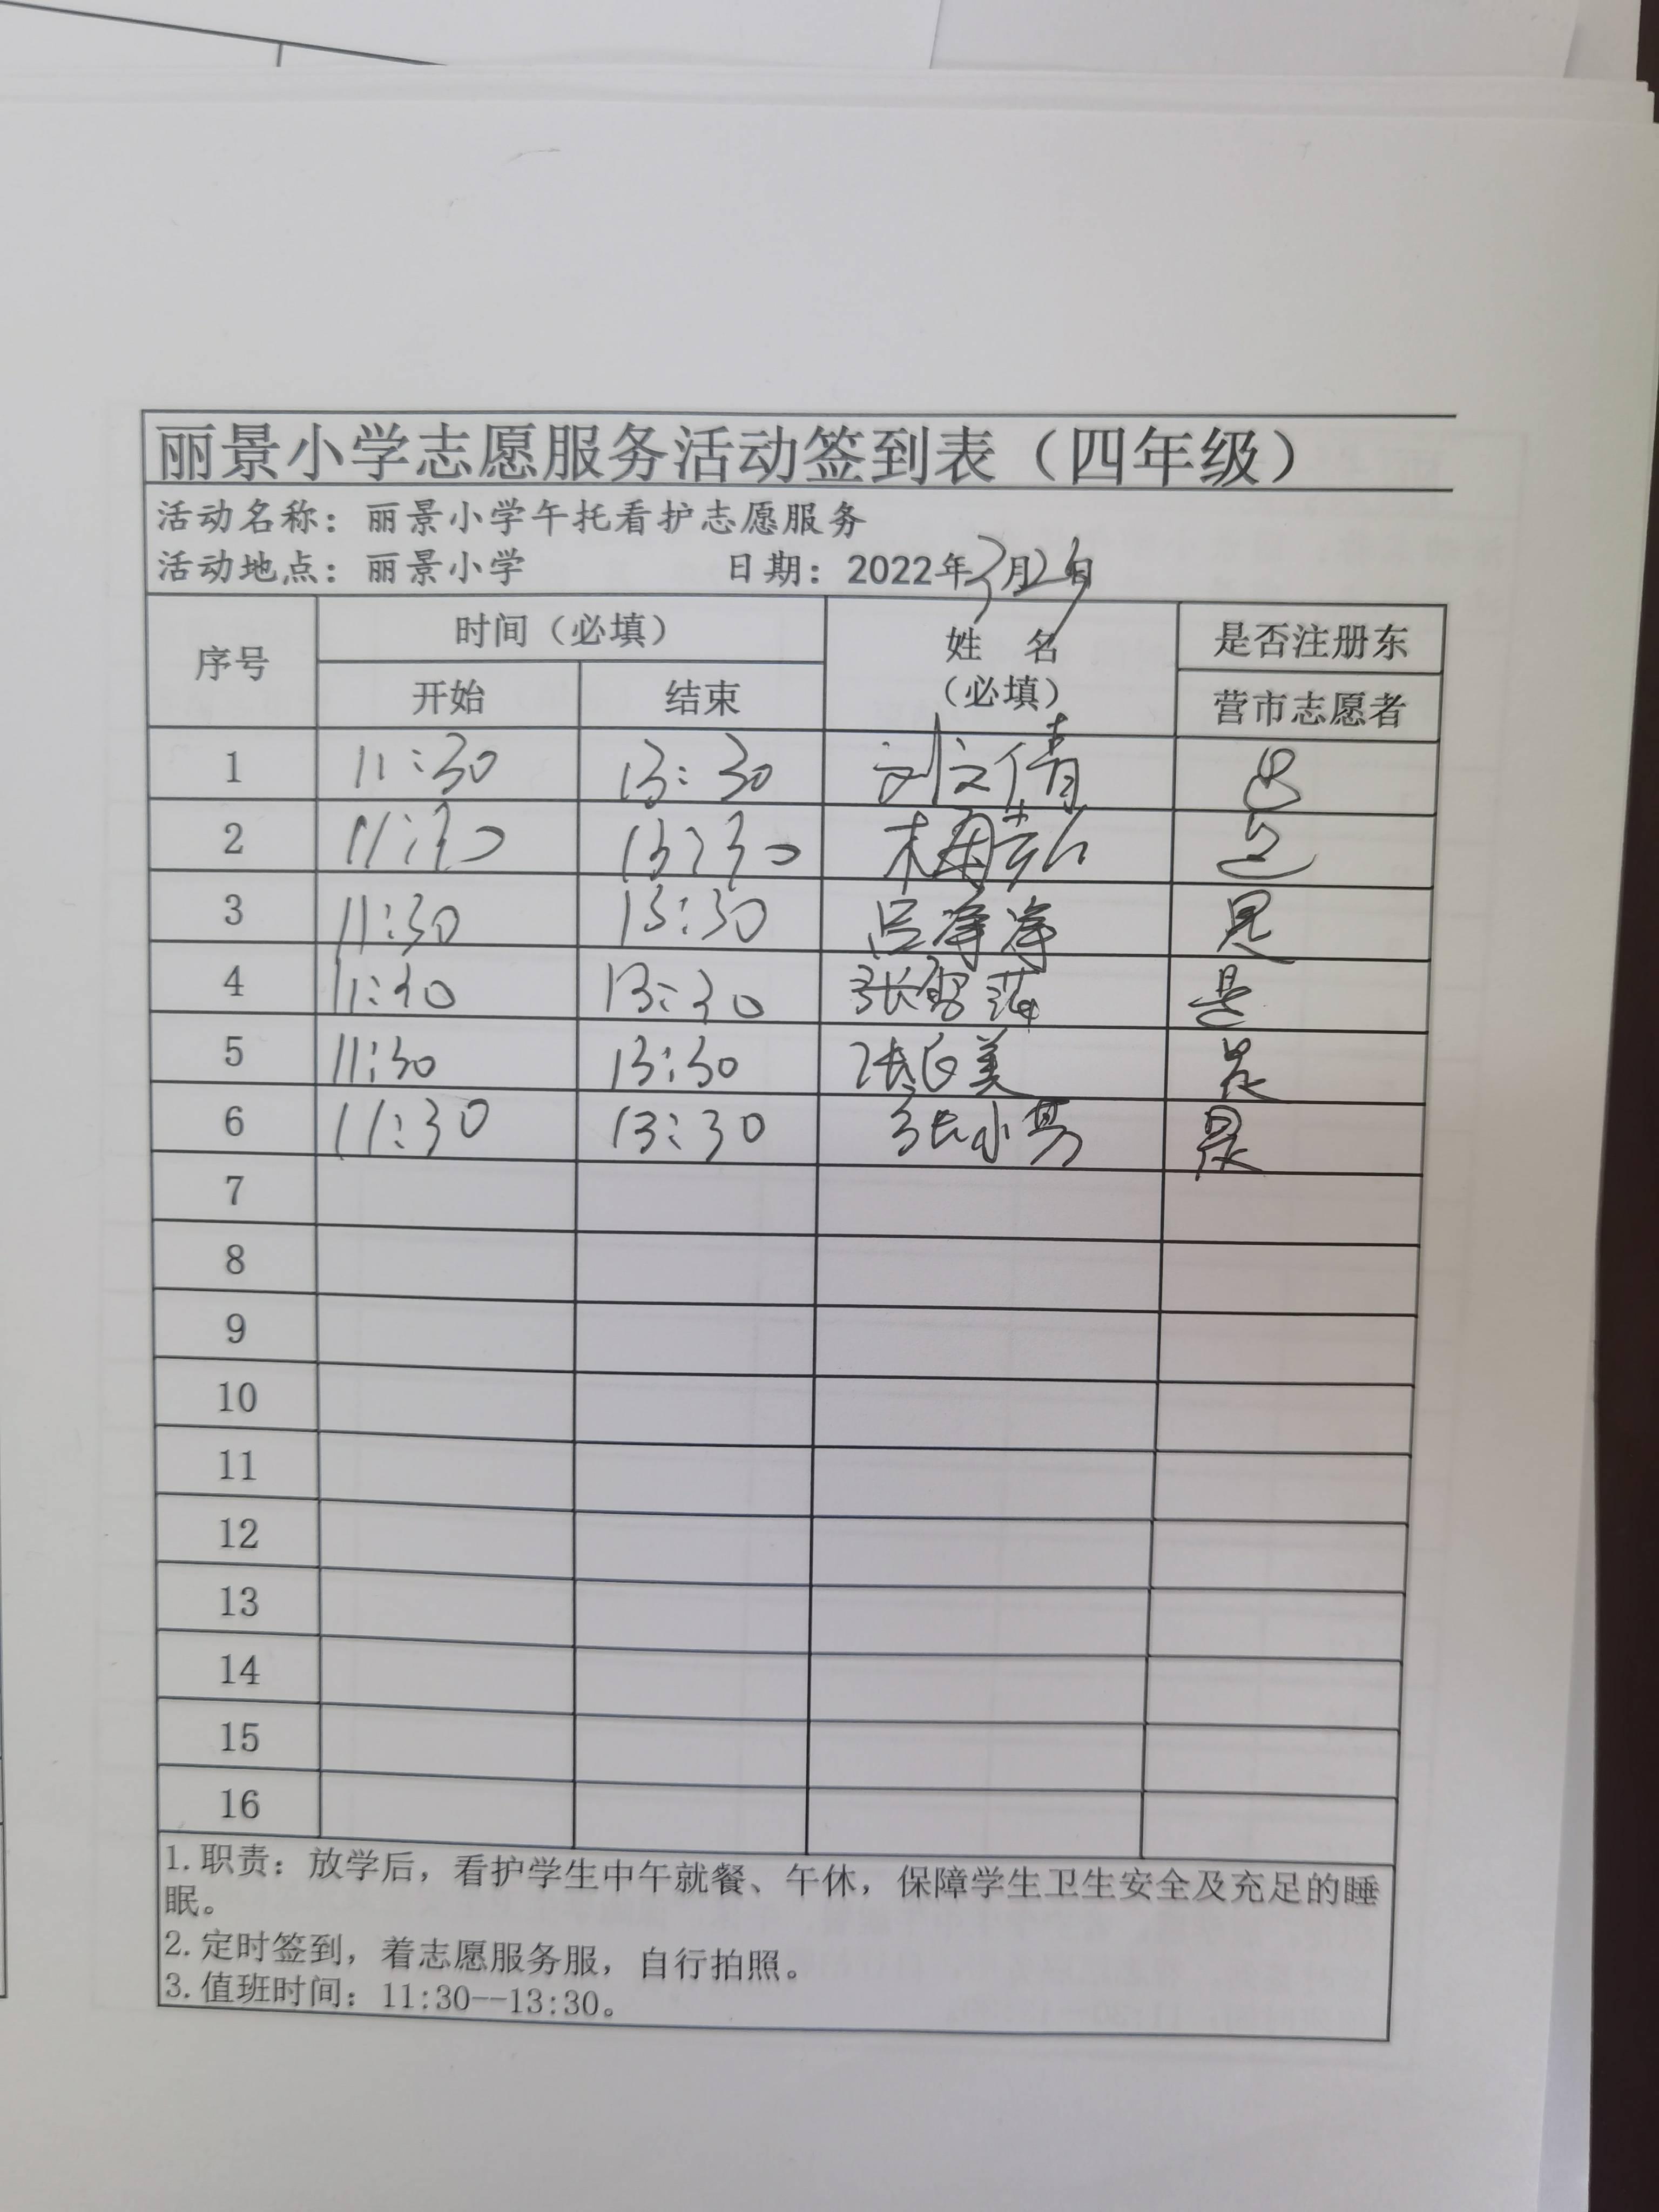 丽景小学志愿服务活动签到表（四年级）
活动名称：丽景小学午托看护志愿服务
活动地点：丽景小学 日期：2022年3月2日
序号 时间（必填） 姓 名（必填） 是否注册东营市志愿者
开始 结束
1 11:30 13:30 刘文倩 是
2 11:30 13:30 是
3 11:30 13:30 吕净净 是
4 11:30 13:30 是
5 11:30 13:30 张白美 是
6 11:30 13:30 张小男 是
7
8
9
10
11
12
13
14
15
16
1.职责：放学后，看护学生中午就餐、午休，保障学生卫生安全及充足的睡
眠。
2.定时签到，着志愿服务服，自行拍照。
3.值班时间：11:30--13:30。